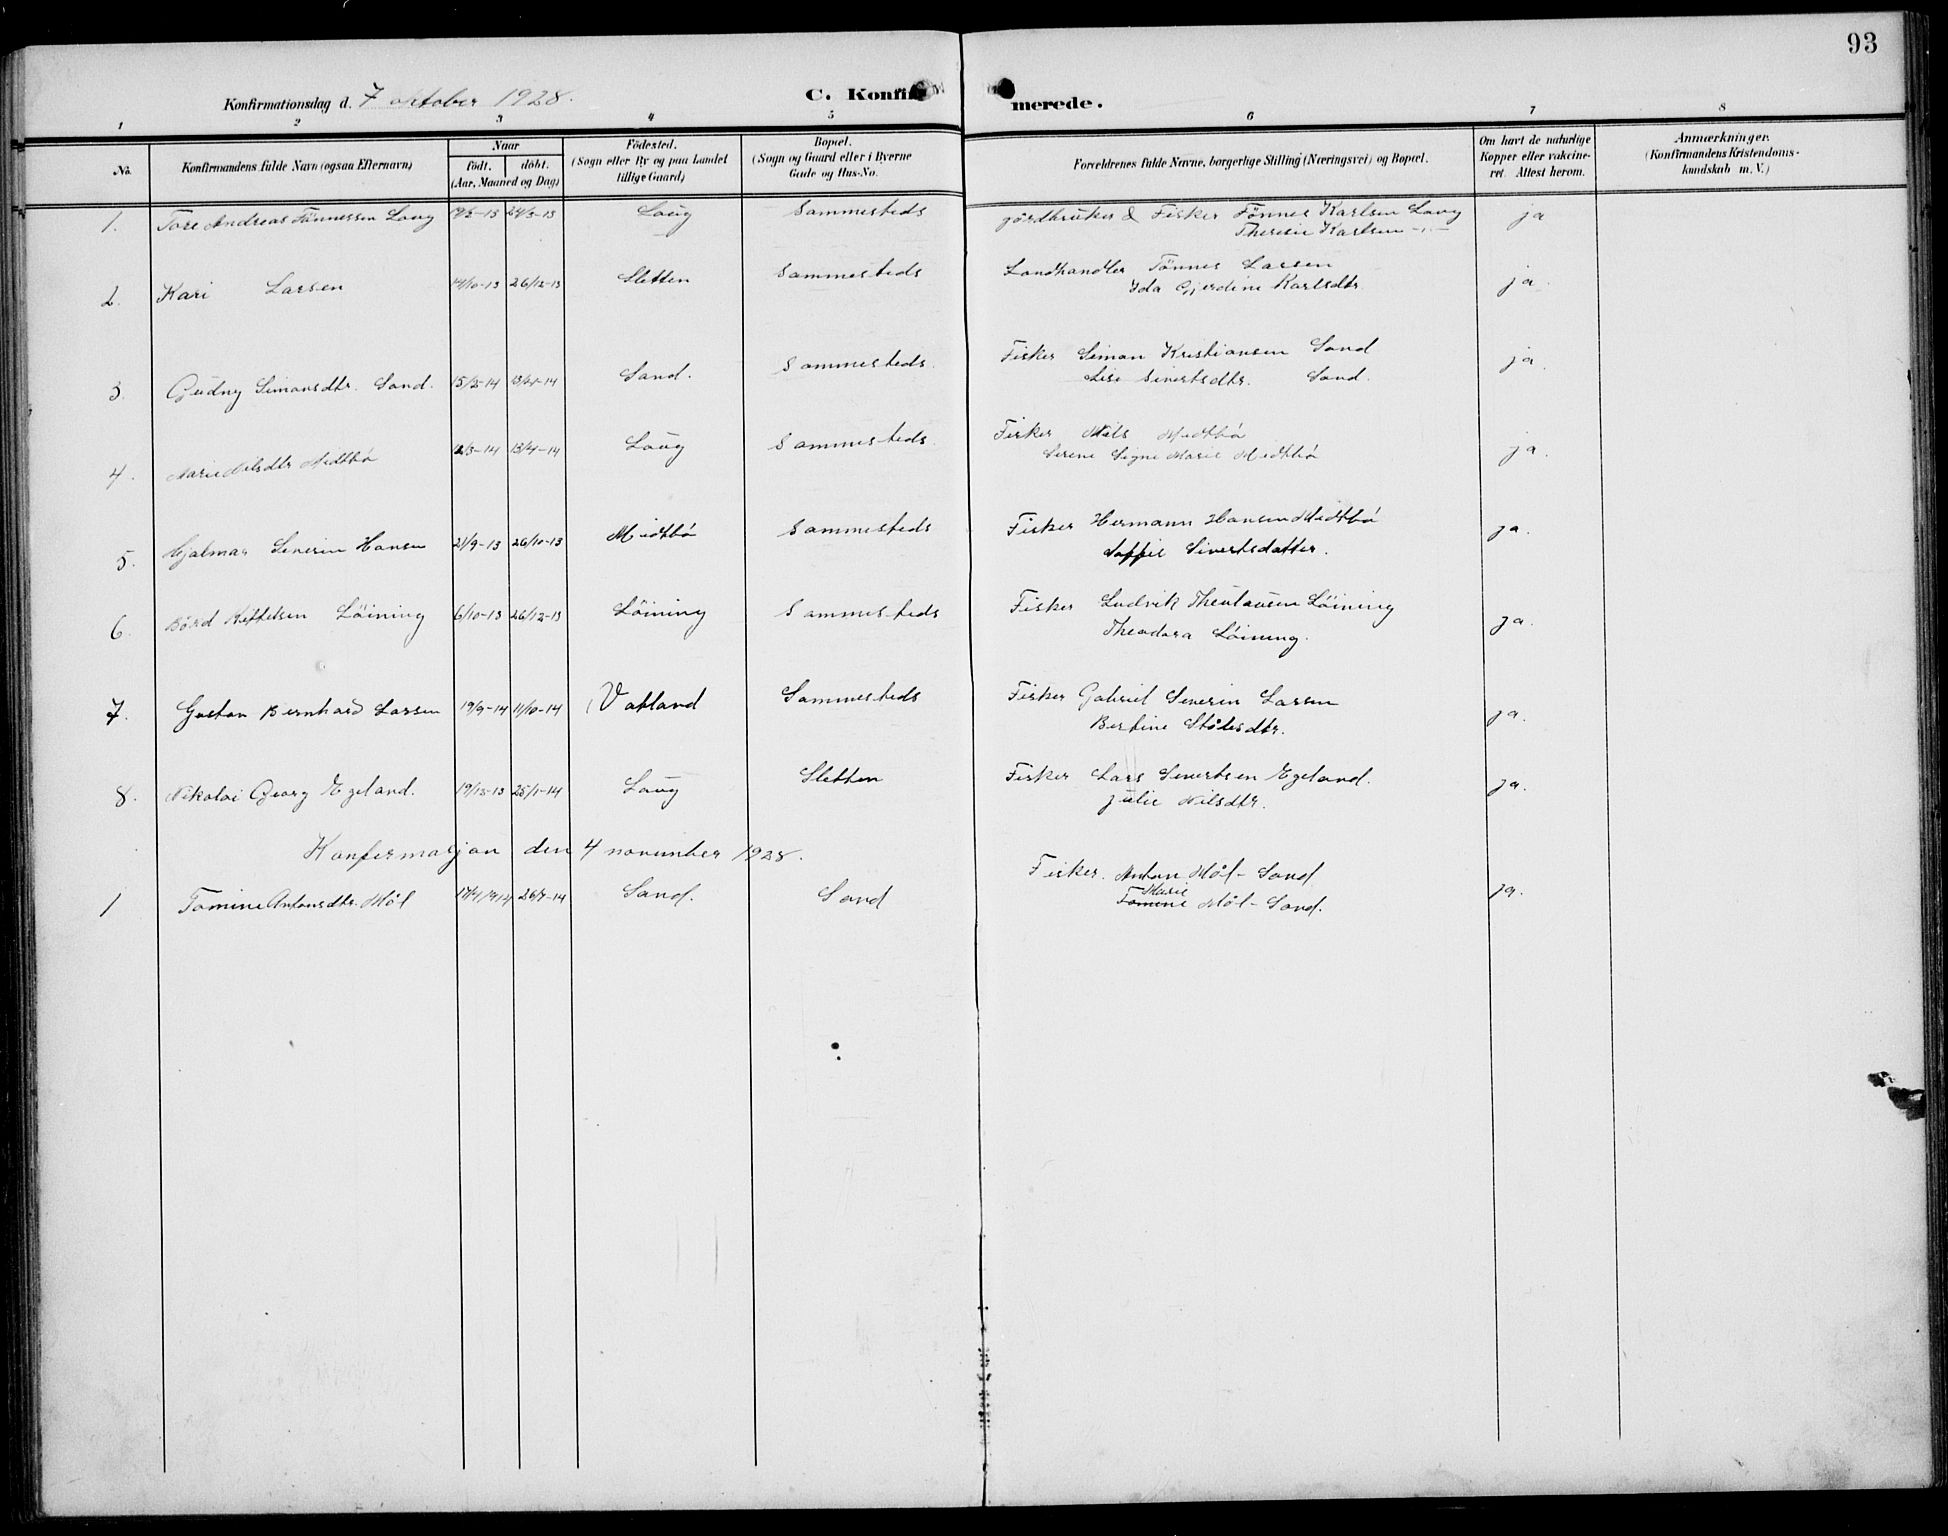 93
Konfirmationsdag d. 7 oktober 1928. C. Konfirmerede.
1 2 3 4 5 6 7 8
No. Konfirmandens fulde Navn (ogsaa Efternavn) Naar født. døbt. (Aar, Maaned og Dag) Fødested. (Sogn eller By og paa Landet tillige Gaard) Bopæl. (Sogn og Gaard eller i Byerne Gade og Hus-No. Forældrenes fulde Navne, borgerlige Stilling (Næringsvei) og Bopæl. Om havt de naturlige Kopper eller vakcineret. Attest herom. Anmærkninger. (Konfirmandens Kristendomskundskab m. V.)
1. Tore Andreas Tønnessen Laug 24/3-13 Laug Sammesteds gårdbruker & Fisker Tønnes Karlsen Laug ja
Theresie Karlsen -"-
2. Kari Larsen 14/10-13 26/12-13 Sletten Sammesteds Landhandler Tønnes Larsen ja.
Ida Gjerdine Karlsdtr.
3. Gudny Simonsdtr. Sand. 15/3-14 13/4-14 Sand. Sammesteds. Fisker Simon Kristiansen Sand ja.
Lise Sivertsdtr. Sand.
4. Marie Nilsdtr Midtbø 2/3-14 13/4-14 Laug Sammesteds. Fisker Nils Midtbø ja.
Serene Signe Marie Midtbø
5. Hjalmar Severin Hansen 21/9-13 26/10-13 Midtbø Sammesteds Fisker Hermann Hansen Midtbø ja.
Soffie Sivertsdatter.
6. Bård Kittelsen Løining 6/10-13 26/12-13 Løining Sammesteds Fisker Ludvik Løining ja.
Theodora Løining.
7. Gustav Bernhard Larsen 19/9-14 11/10-14 Vatland Sammesteds Fisker Gabriel Severin Larsen ja.
Bertine Ståлesdtr.
8. Nikolai Georg Egeland. 19/12-13 25/1-14 Laug Sletten Fisker Lars Sivertsen Egeland. ja.
Julie Nilsdtr.
Konfermasjon den 4 november 1928.
1 Tomine Antonsdtr. Møl 26/7-14 Sand. Sand Fisker. Anton Møl - Sand ja.
Marie
Tomine Møl - Sand.